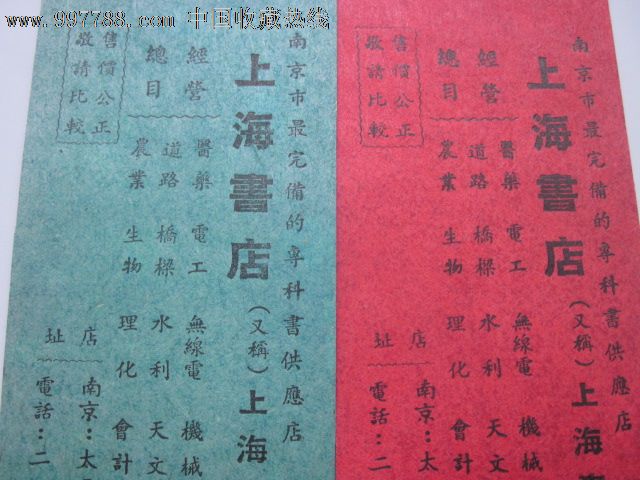 www.997788.com 中国收藏热线
南京市最完備的專科書供應店
上海書店（又稱）上海
經營
總目
醫藥 電工 無線電 機械
道路橋樑 水利 天文
農業 生物 理化 會計
售價公正
敬請比較
店址
南京：太
電話：二
南京市最完備的專科書供應店
上海書店（又稱）上海
經營
總目
醫藥 電工 無線電 機械
道路橋樑 水利 天文
農業 生物 理化 會計
售價公正
敬請比較
店址
南京：太
電話：二